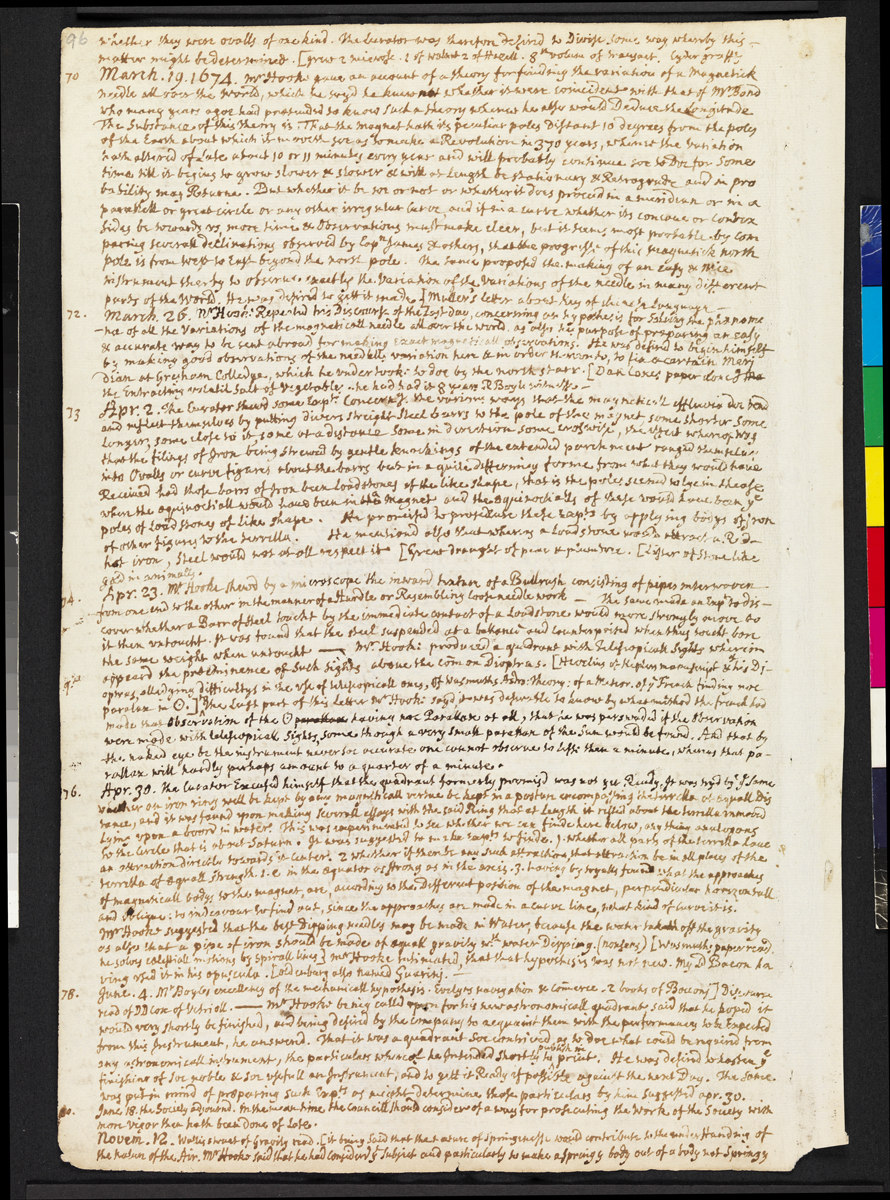 96 whether they were ovalls of one kind. The Curator was thereupon desired to Divise some way whereby this
matter might be determined. [Grew 2 microsc. 1 of walnut 2 of 8th volum of transact. Cyder
70 March. 19. 1674. Mr Hooke gave an account of a theory for finding the variation of a Magnetick
needle all over the world, which he sayd he knew not whether it were coincident with that of Mr. Bond
who many years agoe had pretended to know such a theory whence he also would Deduce the Longitude
The Substance of this theory is. That the magnet hath its peculiar poles Distant 10 degrees from the poles
of the Earth about which it moveth soe as to make a Revolution in 370 years, whence the variation
hath altered of Late about 10 or 11 minutes every year and will probably continue soe to Doe for some
time till it begins to grow slower & slower & will at Length be stationary & Retrograde and in pro
bability may Returne. But whether it be soe or not or whether it does proceed in a meridian or in a
parallell or great circle or any other irregular Curve, and if in a curve whether its concave or convex
sides be towards us, more time & Observations must make cleer, but it seems most probable by com
paring severall declinations observed by Capt James & others, that the progresse of this magnetick north
pole is from west to East beyond the north pole. The same proposed the making of an Easy & nice
instrument therby to observe exactly the Variation of the Variations of the needle in many different
parts of the World. He was desired to gett it made. [Muller's letter about key of chinese Language
72. March. 26. Mr Hooke Repeated his Discourse of the Last Day, concerning an hypothesis for Solving the phænome
-na of all the Variations of the magneticall needle all over the world. as also his purpose of preparing an easy
& accurate way to be sent abroad for making exact magneticall observations. He was desired to begin himself
by making good observations of the needles variation here & in order thereunto, to fix a certain Meri
dian at Gresham Colledge, which he undertook to doe by the north starr. [Dan Coxes paper
the Extracting volatil salt of Vegetables. he had had it 8 years R Boyle witness
73 Apr. 2. The Curator shewd some Expts Concerng. the various ways that the magneticall effluvia doe bend
and reflect themselves by putting divers streight steel barrs to the pole of the magnet some shorter some
Longer, some close to it some at a distance some in direction some crosswise, the effect wherof was
that the filings of Iron being strewed by gentle knockings of the extended parchment ranged themselves
into Ovalls or curve figures about the barrs but in a quite differing forme from what they would have
Received had those barrs of Iron been Loadstones of the like shape, that is the poles seemd to lye in those
where the æquinochiall would have been in the Magnet and the æquinochialls of these would have been ye
poles of Loadstones of like shape. He promised to prosecute these expts by applying bodys of Iron
of other figures to the terrella. He mentioned also that whereas a Loadstone would attract a Red
hot iron, steel would not at all respect it [Grew Draught of pear & plumtree. [Lister of stone like
in animalls.
74. Apr. 23. Mr Hooke shewd by a microscope the inward texture of a Bullrush consisting of pipes interwoven
from one end to the other in the manner of a Hurdle or Resembling loose needle work — The same made an Expt to dis-
cover whether a Barr of steel toucht by the immediate contact of a Loadstone would more strongly move to
it then untoucht. It was found that the steel suspended at a ballance and counterpoised when thus toucht bore
the same weight when untoucht — Mr. Hooke produced a quadrant with Telescopical Sights wherein
appeard the preeminence of such sights above the common Dioptras. [Hevelius of Keplers manuscript & his Di-
optras, alledging difficultys in the use of telescopicall ones, Of wasmuths Astro: theory: of a of ye French finding noe
paralax in ☉.] The Last part of this Letter Mr Hooke sayd it was desirable to know by what method the french had
made that observation of the ☉ having noe Parallax at all, that he was perswaded if the Observation
were made with telescopical sights, some though a very small parallax of the Sun would be found. And that by
the naked eye be the instrument never soe accurate one cannot observe to lesse than a minute, wheras that pa-
rallax will hardly perhaps amount to a quarter of a minute.
76. Apr. 30. The Curator Excused himself that the quadrant formerly promisd was not yet Ready. It was tryd by ye same
whether an iron ring will be kept by any magneticall virtue be kept in a posture encompassing the terrella at equall Dis
tance, and it was found upon making severall essays with the said Ring that at Length it rested about the terrella unmoved
Lying upon a board in water. This was experimented to see whether we can finde here below, any thing analogous
to the circle that is about Saturn. It was suggested to make expts to finde. 1. whether all parts of the terrella have
an attraction directly towards its center. 2 whether if there be any such attraction, that attraction be in all places of the
terrella of æquall strength. i.e in the æquator as strong as in the axis. 3. having by tryalls found what the approaches
of magneticall bodys to the magnet, are, according to the Different position of the magnet, perpendicular horizontall
and oblique: to indeavour to find out, since the approaches are made in a curve line, what kind of curve it is.
Mr Hooke suggested that the best Dipping needles may be made in Water, because the water taketh off the gravity
as also that a pipe of iron should be made of æquall gravity wth water Dipping. (nonsens) [wasmuths paper read.
he solves celestiall motions by spirall lines] Mr Hooke Intimated, that that hypothesis was not new. My Ld Bacon ha
ving used it in his opuscula. [oldenburg also named
78. June. 4. Mr Boyles excellency of the mechanicall hypothesis. Evelyns navigation & Commerce. 2 books of Bacons] Discourse
read of DD Cox of Vitrioll. — Mr Hooke being calld upon for his new astronomicall quadrant said that he hoped it
would very shortly be finished, and being desired by the company to acquaint them with the performances to be Expected
from this Instrument, he answerd. That it was a quadrant soe contrived, as to doe what could be required from
any astronomicall instrument, the particulars wherof he Intended shortly to publish in print. He was desired to hasten ye
finishing of soe noble & soe usefull an Instrument, and to gett it Ready if possible against the next Day. The same
was put in mind of preparing such Expts as might determine those particulars by him suggested apr. 30.
June 18. the Society adjournd. In the mean time, the Councill should consider of a way for prosecuting the work of the Society with
more vigor then hath been done of late.
Novem. 12. Wallis tract of Gravity read. [it being said that the nature of springinesse would contribute to the understanding of
the nature of the Air. Mr Hooke said that he had considerd ye subject and particularly to make a springy body out of a body not springy